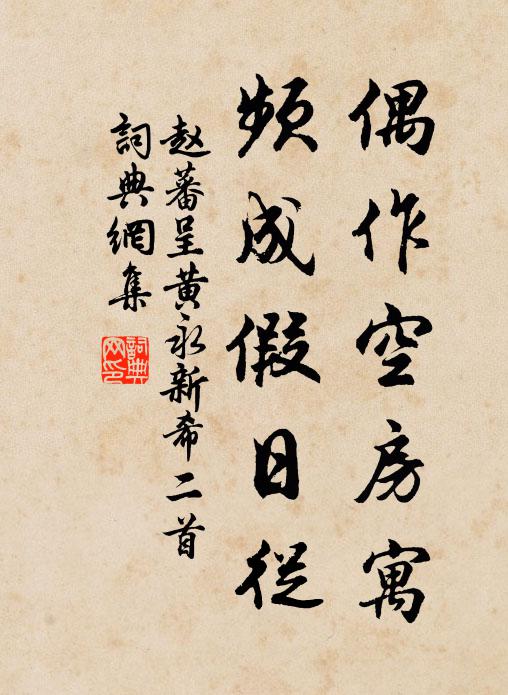 偶作空房寓
頻成假日從
赵蕃呈黄永新希二首
詞典網集
詞典网印